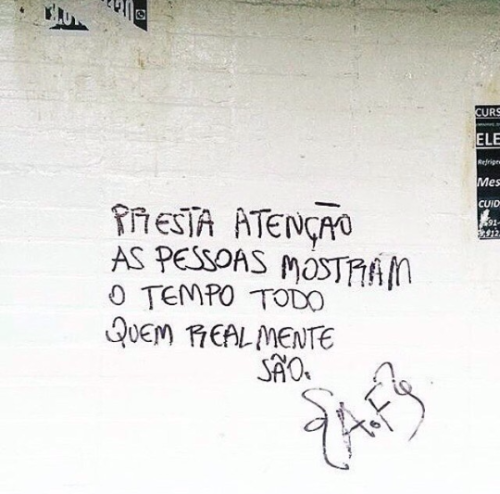 PRESTA ATENÇÃO
AS PESSOAS MOSTRAM
O TEMPO TODO
QUEM REALMENTE
SÃO.
A.Fê
CURS
ELE
Refrige
Mes
CUID